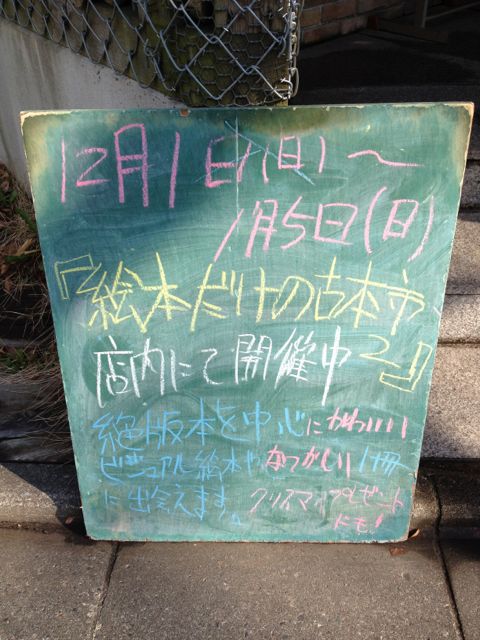 12月1日(日)〜
1月5日(日)
『絵本だけの古本市
店内にて開催中2』
絶版本を中心にかわいい
ビジュアル絵本やなつかしい1冊
に出会えます。クリスマスプレゼント
にも!